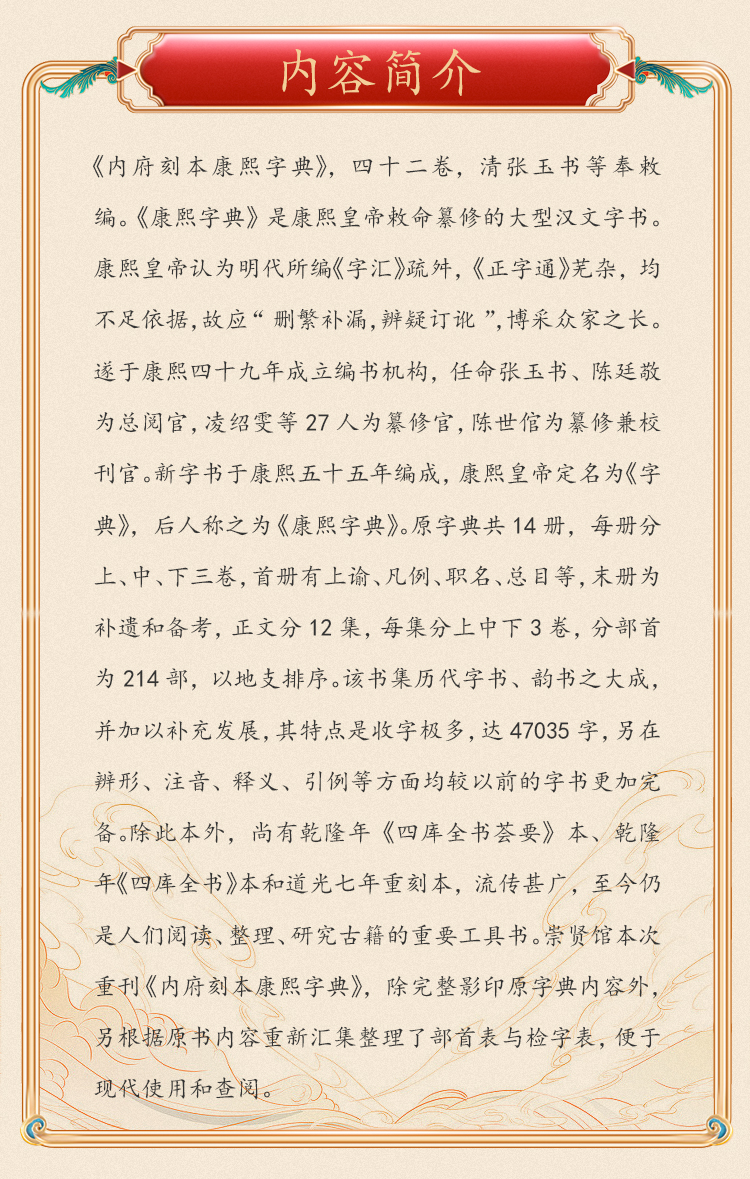 内容简介
《内府刻本康熙字典》，四十二卷，清张玉书等奉敕
编。《康熙字典》是康熙皇帝敕命纂修的大型汉文字书。
康熙皇帝认为明代所编《字汇》疏舛，《正字通》芜杂，均
不足依据，故应“删繁补漏，辨疑订讹”，博采众家之长。
遂于康熙四十九年成立编书机构，任命张玉书、陈廷敬
为总阅官，凌绍雯等27人为纂修官，陈世倌为纂修兼校
刊官。新字书于康熙五十五年编成，康熙皇帝定名为《字
典》，后人称之为《康熙字典》。原字典共14册，每册分
上、中、下三卷，首册有上谕、凡例、职名、总目等，末册为
补遗和备考，正文分12集，每集分上中下3卷，分部首
为214部，以地支排序。该书集历代字书、韵书之大成，
并加以补充发展，其特点是收字极多，达47035字，另在
辨形、注音、释义、引例等方面均较以前的字书更加完
备。除此本外，尚有乾隆年《四库全书荟要》本、乾隆
年《四库全书》本和道光七年重刻本，流传甚广，至今仍
是人们阅读、整理、研究古籍的重要工具书。崇贤馆本次
重刊《内府刻本康熙字典》，除完整影印原字典内容外，
另根据原书内容重新汇集整理了部首表与检字表，便于
现代使用和查阅。